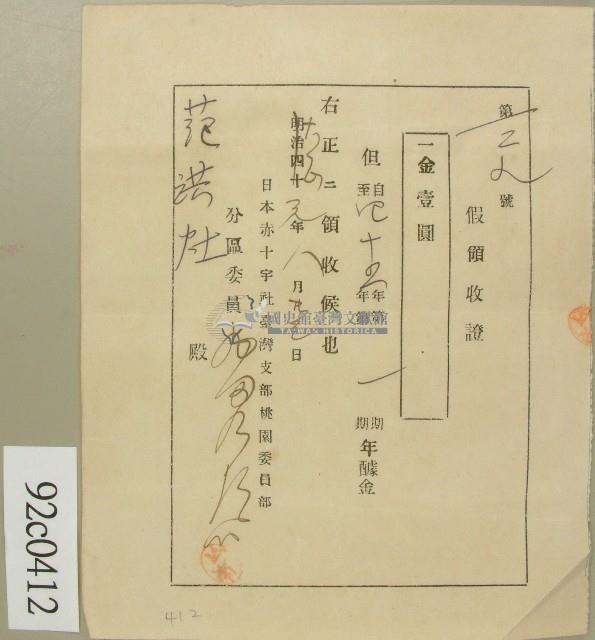 第一三九號
假領收證
一金壹圓
但 自四十五年第一期
至 年第 期 年醵金
右正ニ領收候也
大正元年八月 日
明治四十
日本赤十字社臺灣支部桃園委員部
分區委員
范洪灶 殿
國史館臺灣文獻館
TAIWAN HISTORICA
92c0412
412